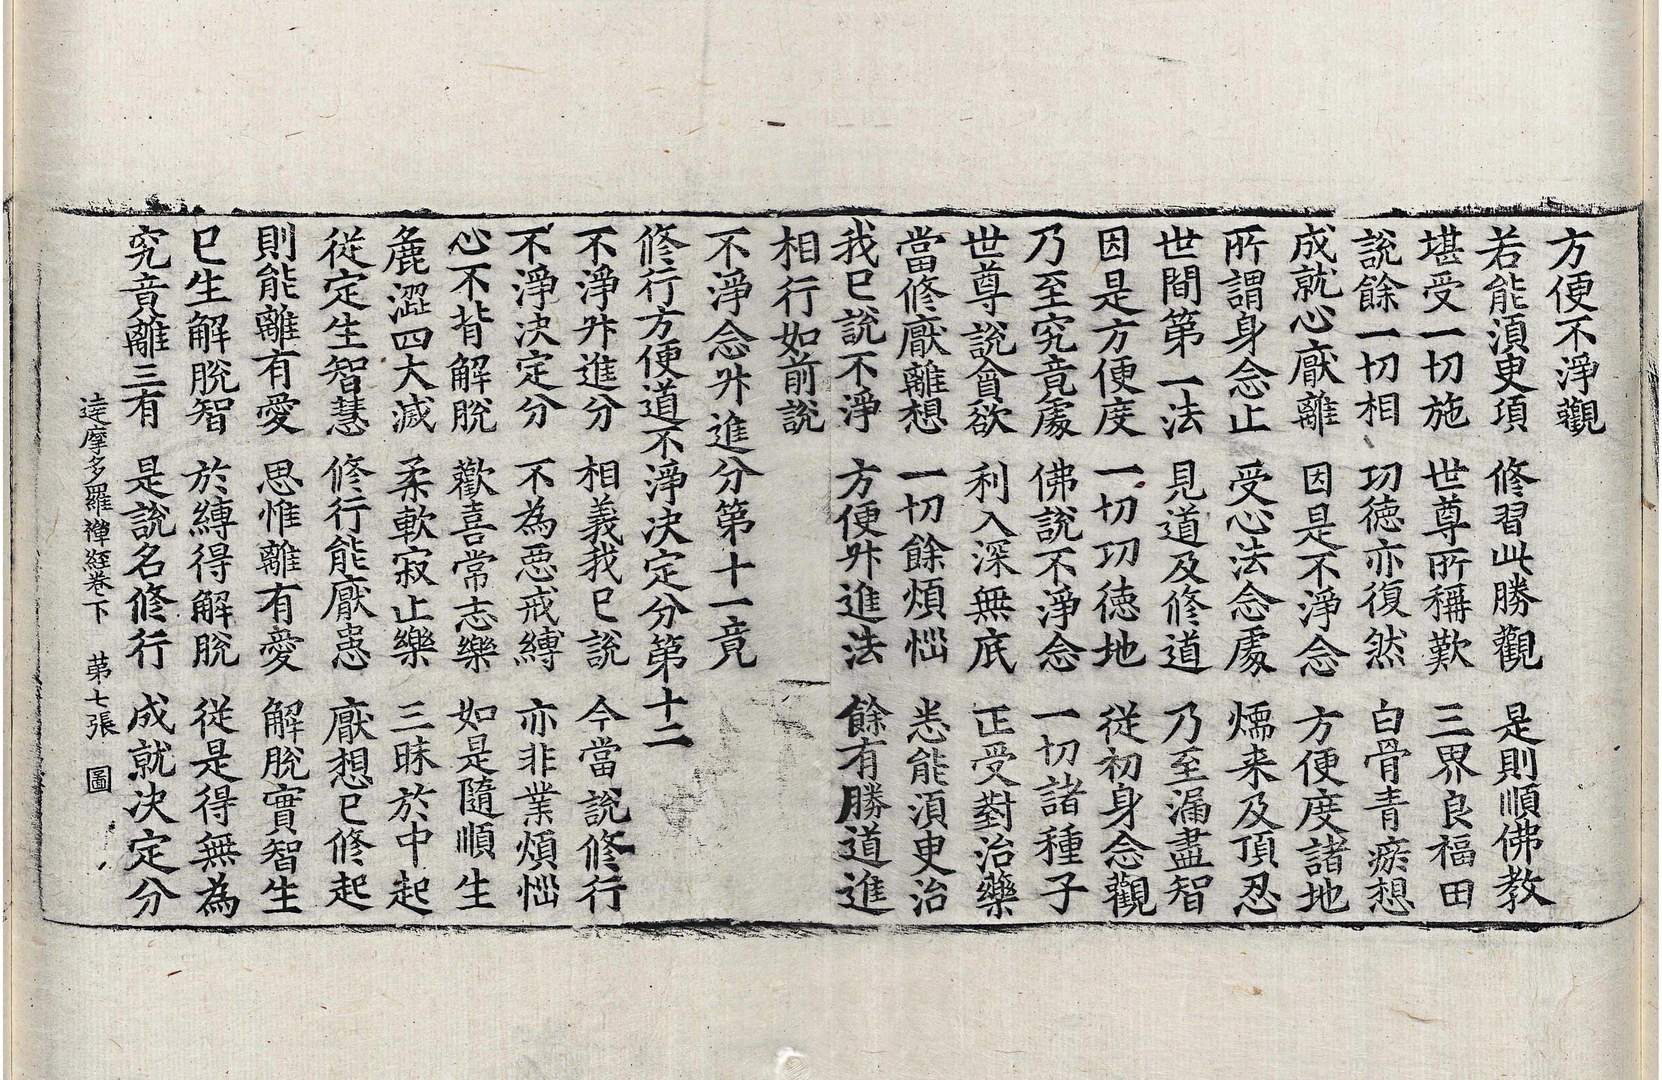 方便不淨觀
若能須臾頃　修習此勝觀　是則順佛教
堪受一切施　世尊所稱歎　三界良福田
說餘一切相　功德亦復然　白骨青瘀想
成就心厭離　因是不淨念　方便度諸地
所謂身念止　受心法念處　燸来及頂忍
世間第一法　見道及修道　乃至漏盡智
因是方便度　一切功德地　從初身念觀
乃至究竟處　佛說不淨念　一切諸種子
世尊說貪欲　利入深無底　正受對治藥
當修厭離想　一切餘煩惱　悉能須臾治
我已說不淨　方便升進法　餘有勝道進
相行如前說
不淨念升進分第十一竟
修行方便道不淨決定分第十二
不淨升進分　相義我已說　今當說修行
不淨決定分　不為惡戒縛　亦非業煩惱
心不背解脫　歡喜常志樂　如是隨順生
麁澀四大滅　柔軟寂止樂　三昧於中起
從定生智慧　修行能厭患　厭想已修起
則能離有愛　思惟離有愛　解脫實智生
已生解脫智　於縛得解脫　從是得無為
究竟離三有　是說名修行　成就決定分
達摩多羅禪經卷下　第七張　圖